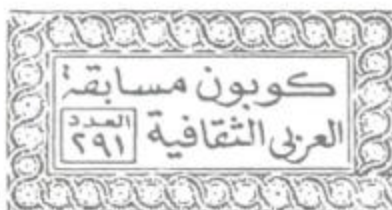 كوبون مسابقة
العربى الثقافية
العدد
٢٩١